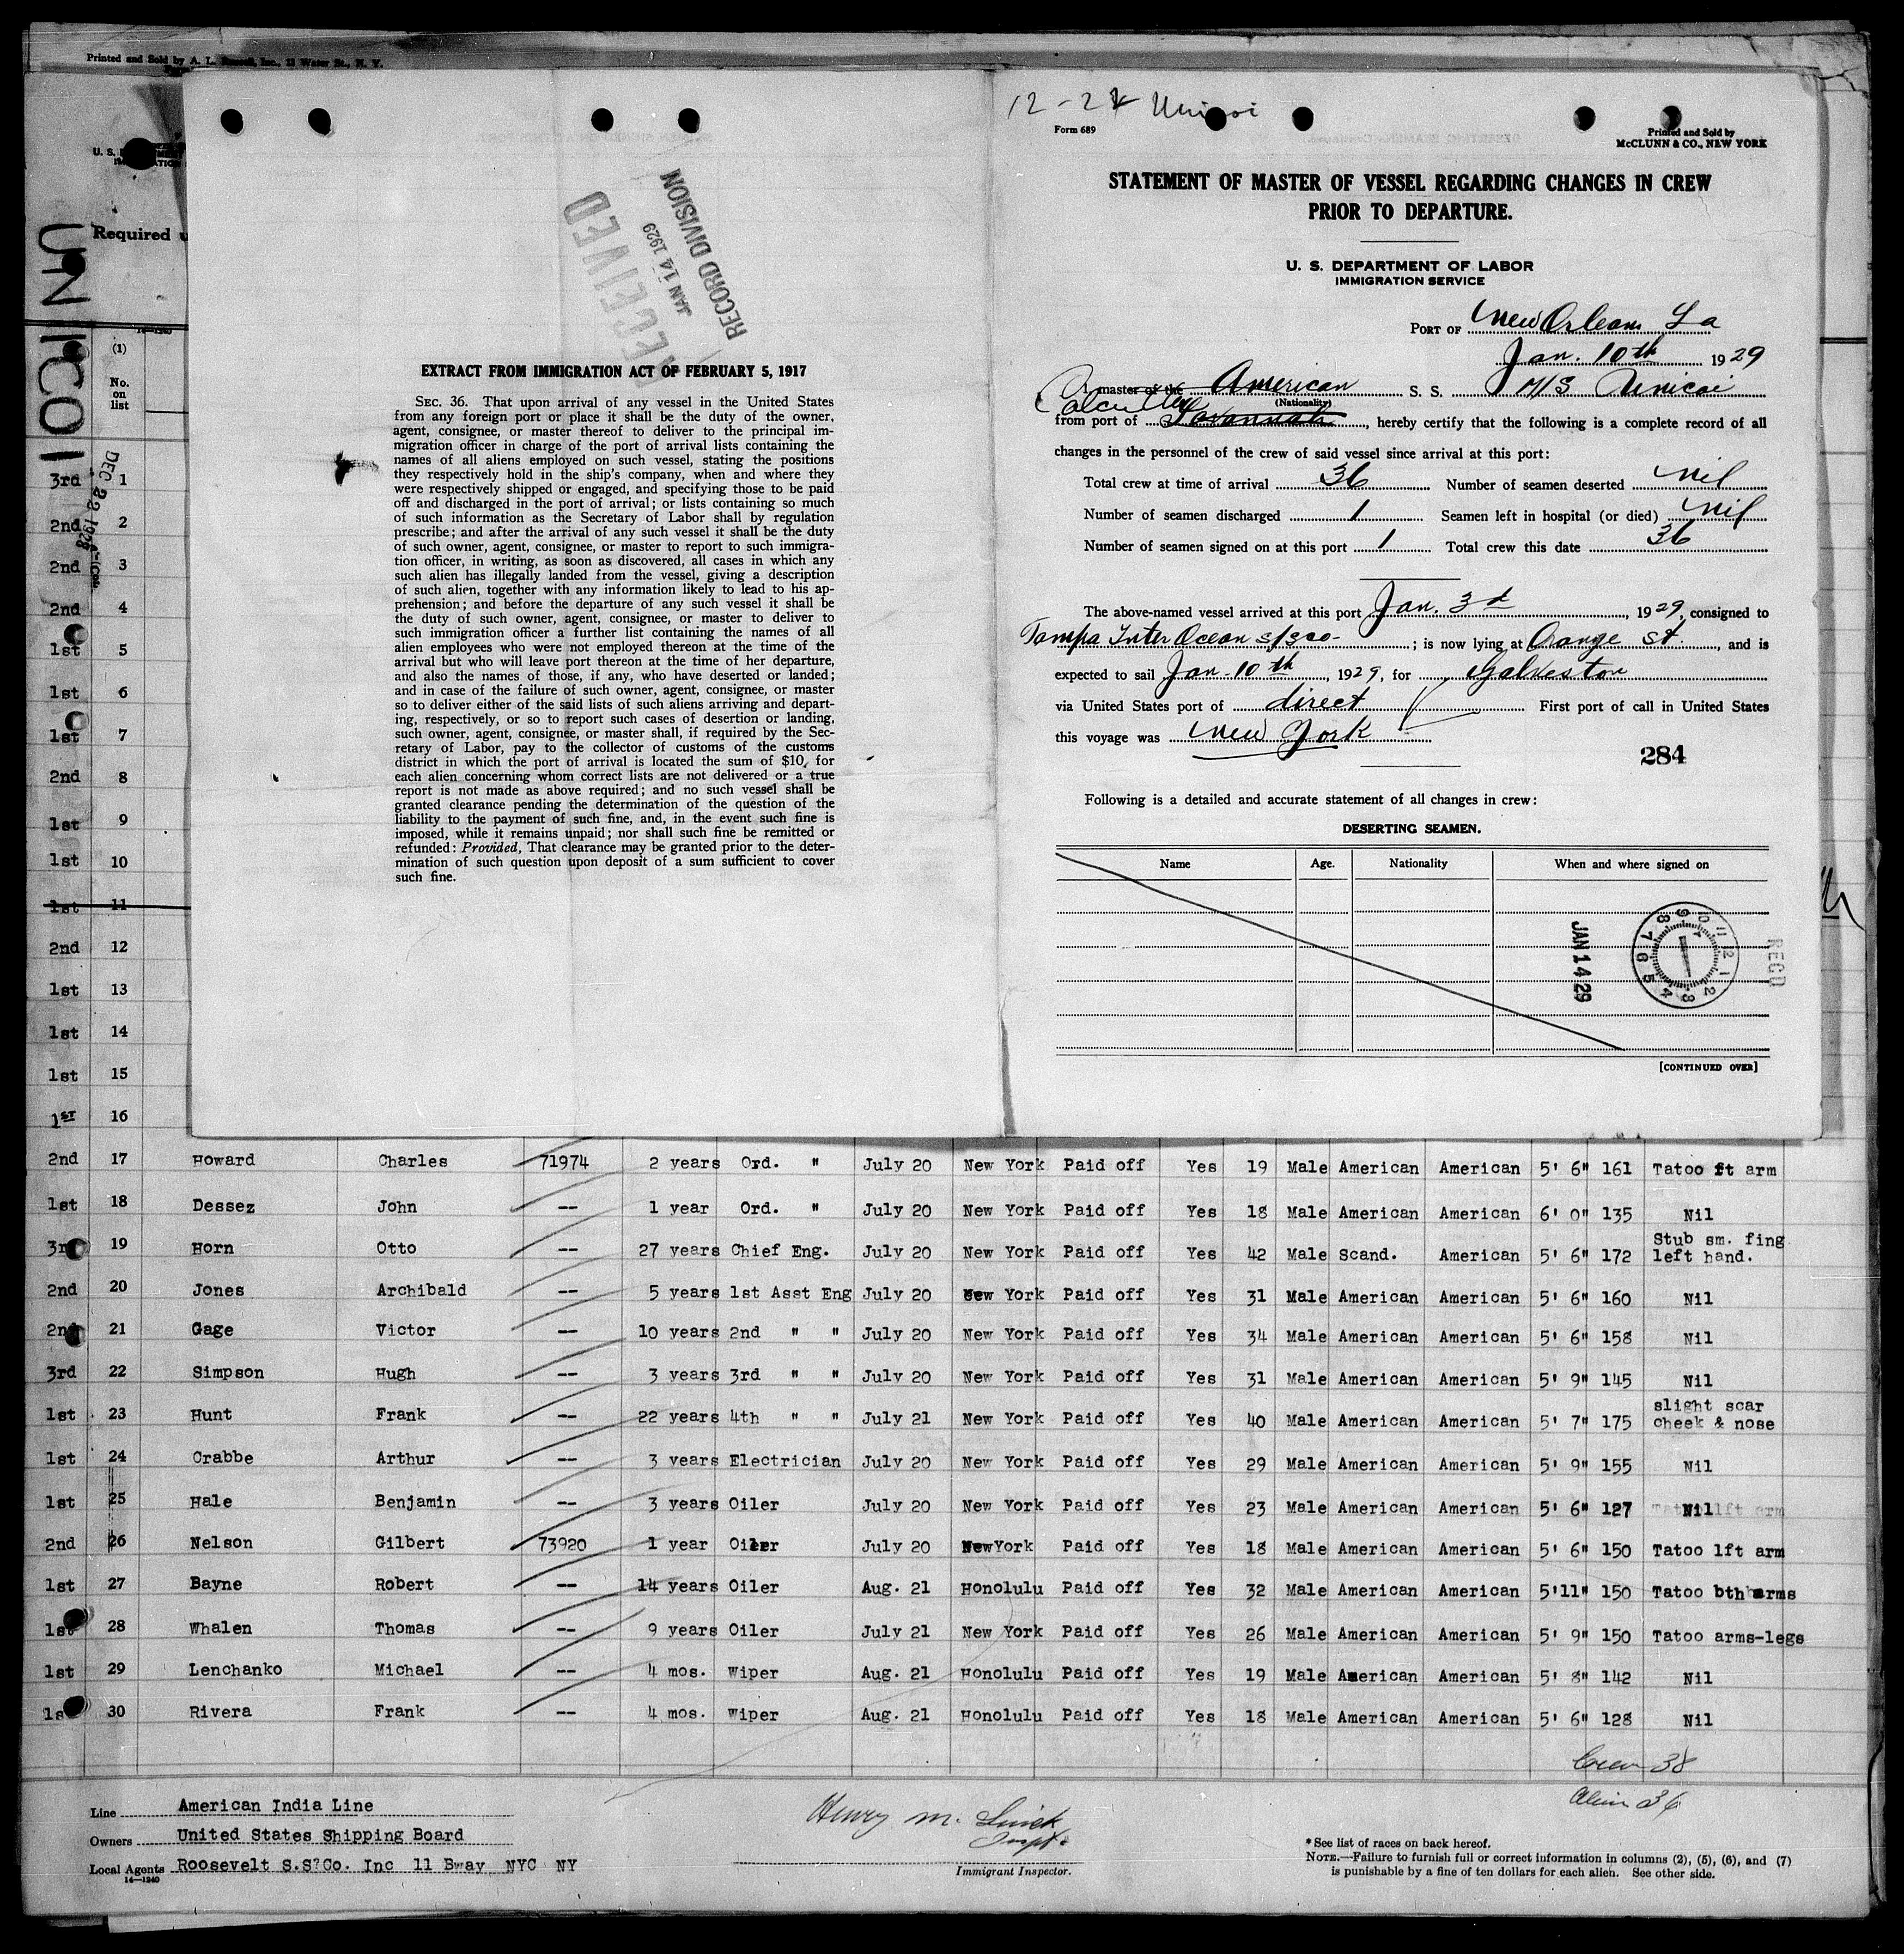 Printed and Sold by A. L. Russell, Inc., 12 Water St., N. Y.
Required
UNICOI
DEC 22 1928
(1)
No.
on
list
3rd 1
2nd 2
2nd 3
2nd 4
1st 5
1st 6
1st 7
2nd 8
1st 9
1st 10
1st 11
2nd 12
1st 13
1st 14
1st 15
1st 16
RECEIVED
JAN 14 1929
RECORD DIVISION
EXTRACT FROM IMMIGRATION ACT OF FEBRUARY 5, 1917
SEC. 36. That upon arrival of any vessel in the United States
from any foreign port or place it shall be the duty of the owner,
agent, consignee, or master thereof to deliver to the principal im-
migration officer in charge of the port of arrival lists containing the
names of all aliens employed on such vessel, stating the positions
they respectively hold in the ship's company, when and where they
were respectively shipped or engaged, and specifying those to be paid
off and discharged in the port of arrival; or lists containing so much
of such information as the Secretary of Labor shall by regulation
prescribe; and after the arrival of any such vessel it shall be the duty
of such owner, agent, consignee, or master to report to such immigra-
tion officer, in writing, as soon as discovered, all cases in which any
such alien has illegally landed from the vessel, giving a description
of such alien, together with any information likely to lead to his ap-
prehension; and before the departure of any such vessel it shall be
the duty of such owner, agent, consignee, or master to deliver to
such immigration officer a further list containing the names of all
alien employees who were not employed thereon at the time of the
arrival but who will leave port thereon at the time of her departure,
and also the names of those, if any, who have deserted or landed;
and in case of the failure of such owner, agent, consignee, or master
so to deliver either of the said lists of such aliens arriving and depart-
ing, respectively, or so to report such cases of desertion or landing,
such owner, agent, consignee, or master shall, if required by the Sec-
retary of Labor, pay to the collector of customs of the customs
district in which the port of arrival is located the sum of $10, for
each alien concerning whom correct lists are not delivered or a true
report is not made as above required; and no such vessel shall be
granted clearance pending the determination of the question of the
liability to the payment of such fine, and, in the event such fine is
imposed, while it remains unpaid; nor shall such fine be remitted or
refunded: Provided, That clearance may be granted prior to the deter-
mination of such question upon deposit of a sum sufficient to cover
such fine.
12-22 Unicoi
Form 689
Printed and Sold by
McCLUNN & CO., NEW YORK
STATEMENT OF MASTER OF VESSEL REGARDING CHANGES IN CREW
PRIOR TO DEPARTURE.
U. S. DEPARTMENT OF LABOR
IMMIGRATION SERVICE
PORT OF New Orleans La
Jan. 10th 1929
master of the American S. S. M/S Unicoi
(Nationality)
Calcutta
from port of Savannah, hereby certify that the following is a complete record of all
changes in the personnel of the crew of said vessel since arrival at this port:
Total crew at time of arrival 36 Number of seamen deserted nil
Number of seamen discharged 1 Seamen left in hospital (or died) nil
Number of seamen signed on at this port 1 Total crew this date 36
The above-named vessel arrived at this port Jan. 3d, 1929, consigned to
Tampa Inter Ocean S/S Co-; is now lying at Orange St., and is
expected to sail Jan. 10th, 1929, for Galveston
via United States port of direct First port of call in United States
this voyage was New York
284
Following is a detailed and accurate statement of all changes in crew:
DESERTING SEAMEN.
Name Age. Nationality When and where signed on
JAN 14 29
RECD
[CONTINUED OVER]
2nd 17 Howard Charles 71974 2 years Ord. " July 20 New York Paid off Yes 19 Male American American 5' 6" 161 Tatoo ft arm
1st 18 Dessez John -- 1 year Ord. " July 20 New York Paid off Yes 18 Male American American 6' 0" 135 Nil
3rd 19 Horn Otto -- 27 years Chief Eng. July 20 New York Paid off Yes 42 Male Scand. American 5' 6" 172 Stub sm. fing left hand.
2nd 20 Jones Archibald -- 5 years 1st Asst Eng July 20 New York Paid off Yes 31 Male American American 5' 6" 160 Nil
2nd 21 Gage Victor -- 10 years 2nd " " July 20 New York Paid off Yes 34 Male American American 5' 6" 158 Nil
3rd 22 Simpson Hugh -- 3 years 3rd " " July 20 New York Paid off Yes 31 Male American American 5' 9" 145 Nil
1st 23 Hunt Frank -- 22 years 4th " " July 21 New York Paid off Yes 40 Male American American 5' 7" 175 slight scar cheek & nose
1st 24 Crabbe Arthur -- 3 years Electrician July 20 New York Paid off Yes 29 Male American American 5' 9" 155 Nil
1st 25 Hale Benjamin -- 3 years Oiler July 20 New York Paid off Yes 23 Male American American 5' 6" 127 Nil
2nd 26 Nelson Gilbert 73920 1 year Oiler July 20 NewYork Paid off Yes 18 Male American American 5' 6" 150 Tatoo lft arm
1st 27 Bayne Robert -- 14 years Oiler Aug. 21 Honolulu Paid off Yes 32 Male American American 5'11" 150 Tatoo bth arms
1st 28 Whalen Thomas -- 9 years Oiler July 21 New York Paid off Yes 26 Male American American 5' 9" 150 Tatoo arms-legs
1st 29 Lenchanko Michael -- 4 mos. Wiper Aug. 21 Honolulu Paid off Yes 19 Male American American 5' 8" 142 Nil
1st 30 Rivera Frank -- 4 mos. Wiper Aug. 21 Honolulu Paid off Yes 18 Male American American 5' 6" 128 Nil
Crew 38
Line American India Line
Owners United States Shipping Board
Local Agents Roosevelt S.S?Co. Inc 11 Bway NYC NY
14—1240
Henry M.
Immigrant Inspector.
* See list of races on back hereof.
NOTE.—Failure to furnish full or correct information in columns (2), (5), (6), and (7)
is punishable by a fine of ten dollars for each alien. See other side.